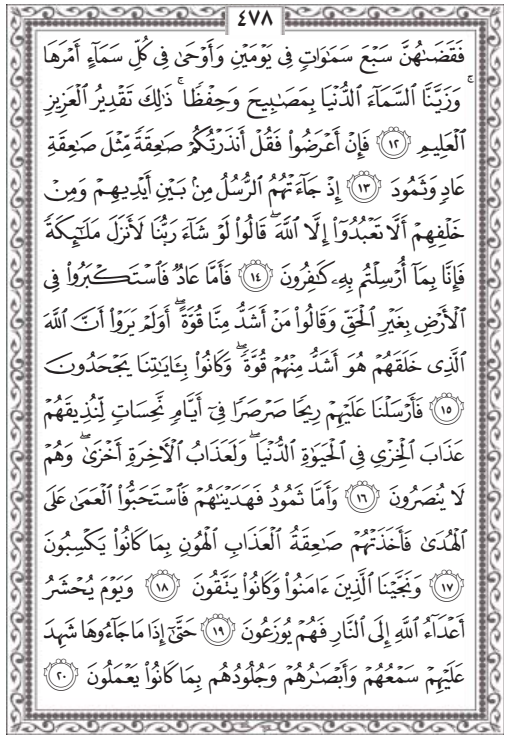 ٤٧٨
فَقَضَىٰهُنَّ سَبْعَ سَمَٰوَاتٍ فِى يَوْمَيْنِ وَأَوْحَىٰ فِى كُلِّ سَمَآءٍ أَمْرَهَا
ۚ وَزَيَّنَّا ٱلسَّمَآءَ ٱلدُّنْيَا بِمَصَٰبِيحَ وَحِفْظًا ۚ ذَٰلِكَ تَقْدِيرُ ٱلْعَزِيزِ
ٱلْعَلِيمِ ١٢ فَإِنْ أَعْرَضُوا۟ فَقُلْ أَنذَرْتُكُمْ صَٰعِقَةً مِّثْلَ صَٰعِقَةِ
عَادٍ وَثَمُودَ ١٣ إِذْ جَآءَتْهُمُ ٱلرُّسُلُ مِنۢ بَيْنِ أَيْدِيهِمْ وَمِنْ
خَلْفِهِمْ أَلَّا تَعْبُدُوٓا۟ إِلَّا ٱللَّهَ ۖ قَالُوا۟ لَوْ شَآءَ رَبُّنَا لَأَنزَلَ مَلَٰٓئِكَةً
فَإِنَّا بِمَآ أُرْسِلْتُم بِهِۦ كَٰفِرُونَ ١٤ فَأَمَّا عَادٌ فَٱسْتَكْبَرُوا۟ فِى
ٱلْأَرْضِ بِغَيْرِ ٱلْحَقِّ وَقَالُوا۟ مَنْ أَشَدُّ مِنَّا قُوَّةً ۖ أَوَلَمْ يَرَوْا۟ أَنَّ ٱللَّهَ
ٱلَّذِى خَلَقَهُمْ هُوَ أَشَدُّ مِنْهُمْ قُوَّةً ۖ وَكَانُوا۟ بِـَٔايَٰتِنَا يَجْحَدُونَ
١٥ فَأَرْسَلْنَا عَلَيْهِمْ رِيحًا صَرْصَرًا فِىٓ أَيَّامٍ نَّحِسَاتٍ لِّنُذِيقَهُمْ
عَذَابَ ٱلْخِزْىِ فِى ٱلْحَيَوٰةِ ٱلدُّنْيَا ۖ وَلَعَذَابُ ٱلْءَاخِرَةِ أَخْزَىٰ ۖ وَهُمْ
لَا يُنصَرُونَ ١٦ وَأَمَّا ثَمُودُ فَهَدَيْنَٰهُمْ فَٱسْتَحَبُّوا۟ ٱلْعَمَىٰ عَلَى
ٱلْهُدَىٰ فَأَخَذَتْهُمْ صَٰعِقَةُ ٱلْعَذَابِ ٱلْهُونِ بِمَا كَانُوا۟ يَكْسِبُونَ
١٧ وَنَجَّيْنَا ٱلَّذِينَ ءَامَنُوا۟ وَكَانُوا۟ يَتَّقُونَ ١٨ وَيَوْمَ يُحْشَرُ
أَعْدَآءُ ٱللَّهِ إِلَى ٱلنَّارِ فَهُمْ يُوزَعُونَ ١٩ حَتَّىٰٓ إِذَا مَا جَآءُوهَا شَهِدَ
عَلَيْهِمْ سَمْعُهُمْ وَأَبْصَٰرُهُمْ وَجُلُودُهُم بِمَا كَانُوا۟ يَعْمَلُونَ ٢٠